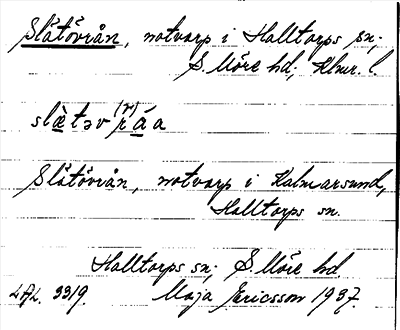 Slätövrån, notvarp i Halltorps sn;
S. Möre hd, Klmr. l.
slæ̀təv(r)ráa
Slätövrån, notvarp i Kalmarsund,
Halltorps sn.
Halltorps sn; S. Möre hd
LAL. 3319. Maja Ericsson 1937.